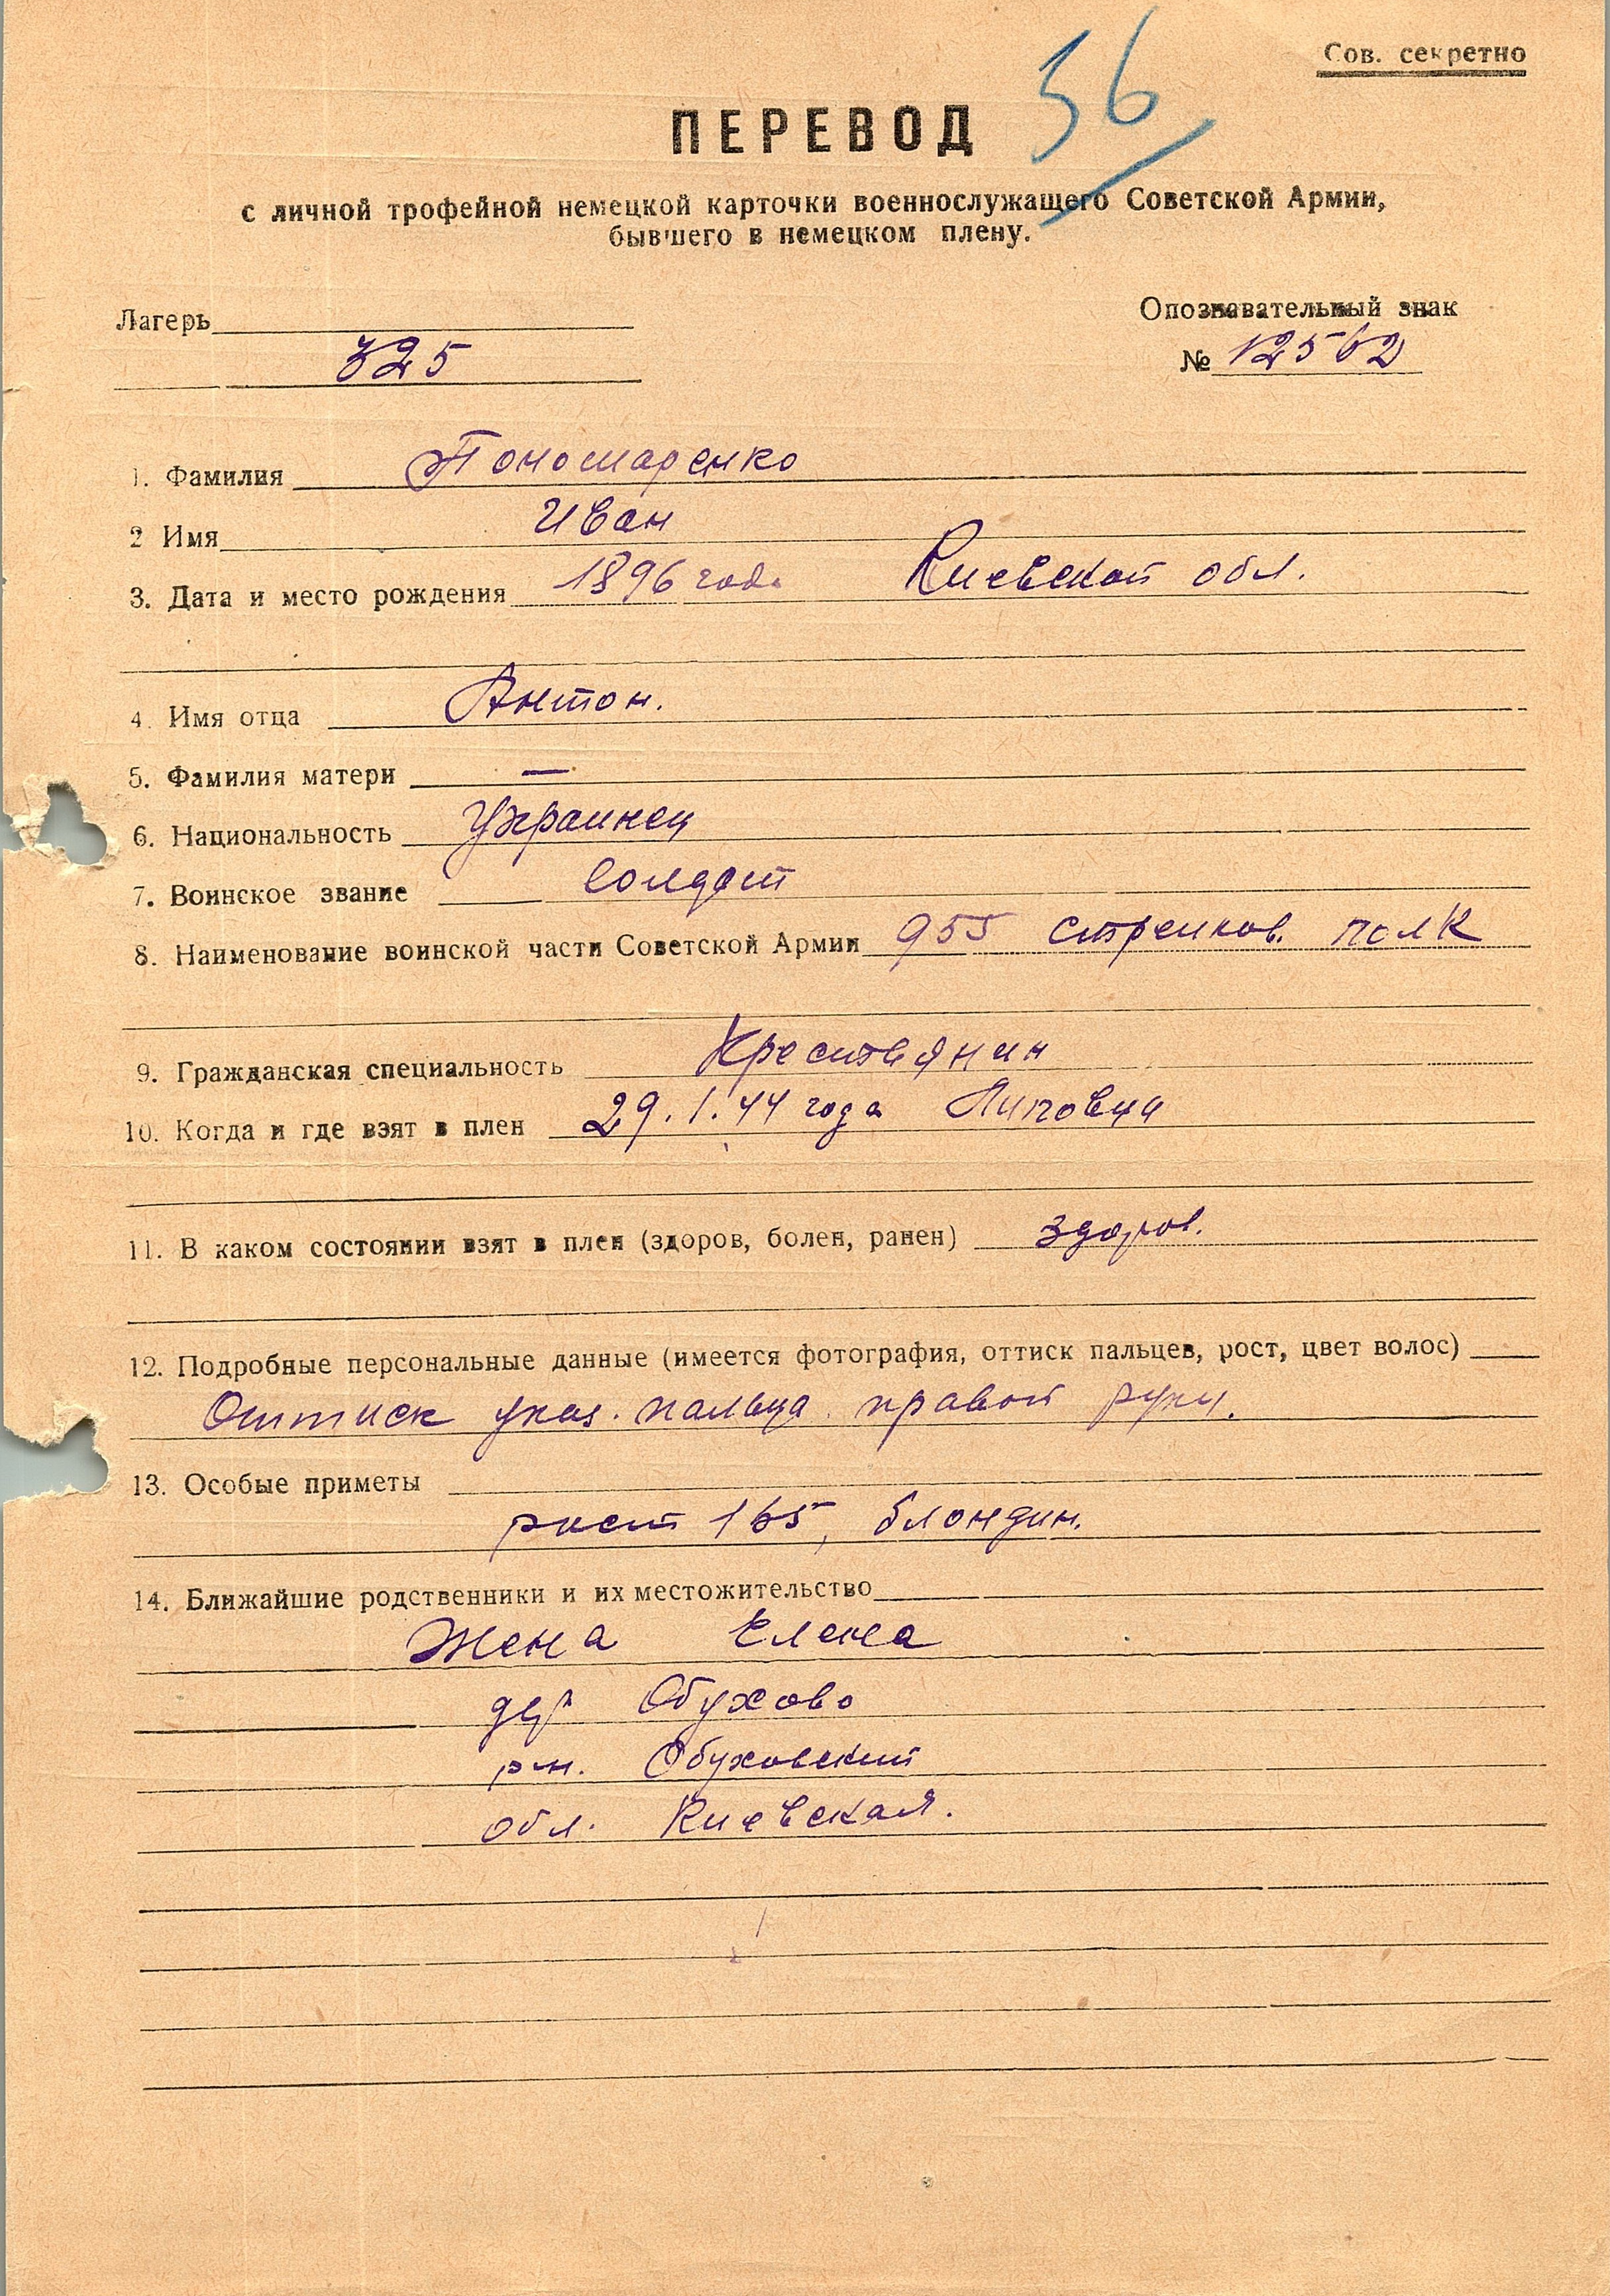 Сов. секретно
56
ПЕРЕВОД
с личной трофейной немецкой карточки военнослужащего Советской Армии,
бывшего в немецком плену.
Лагерь
325
Опознавательный знак
№ 12562
1. Фамилия Пономаренко
2 Имя Иван
3. Дата и место рождения 1896 года Киевской обл.
4. Имя отца Антон.
5. Фамилия матери —
6. Национальность Украинец
7. Воинское звание солдат
8. Наименование воинской части Советской Армии 955 стрелков. полк
9. Гражданская специальность Крестьянин
10. Когда и где взят в плен 29.1.44 года Липовцы
11. В каком состоянии взят в плен (здоров, болен, ранен) здоров.
12. Подробные персональные данные (имеется фотография, оттиск пальцев, рост, цвет волос)
Оттиск указ. пальца правой руки.
13. Особые приметы
рост 165, блондин.
14. Ближайшие родственники и их местожительство
Жена Елена
дер Обухово
рн. Обуховский
обл. Киевская.